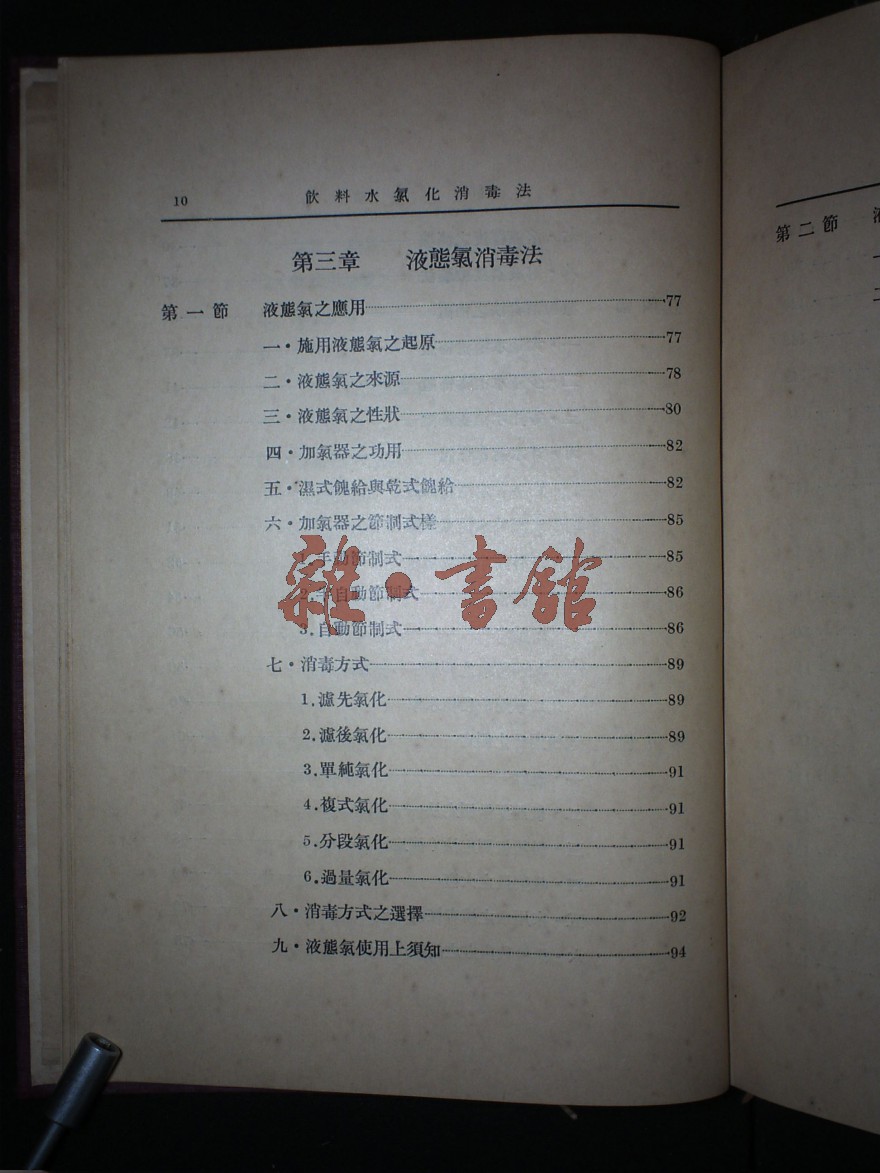 10 飲料水氯化消毒法
第三章 液態氯消毒法
第一節 液態氯之應用 77
一・施用液態氯之起原 77
二・液態氯之來源 78
三・液態氯之性狀 80
四・加氯器之功用 82
五・濕式餽給與乾式餽給 82
六・加氯器之節制式樣 85
1.手動節制式 85
2.半自動節制式 86
3.自動節制式 86
七・消毒方式 89
1.濾先氯化 89
2.濾後氯化 89
3.單純氯化 91
4.複式氯化 91
5.分段氯化 91
6.過量氯化 91
八・消毒方式之選擇 92
九・液態氯使用上須知 94
雜・書館
第二節
一
二